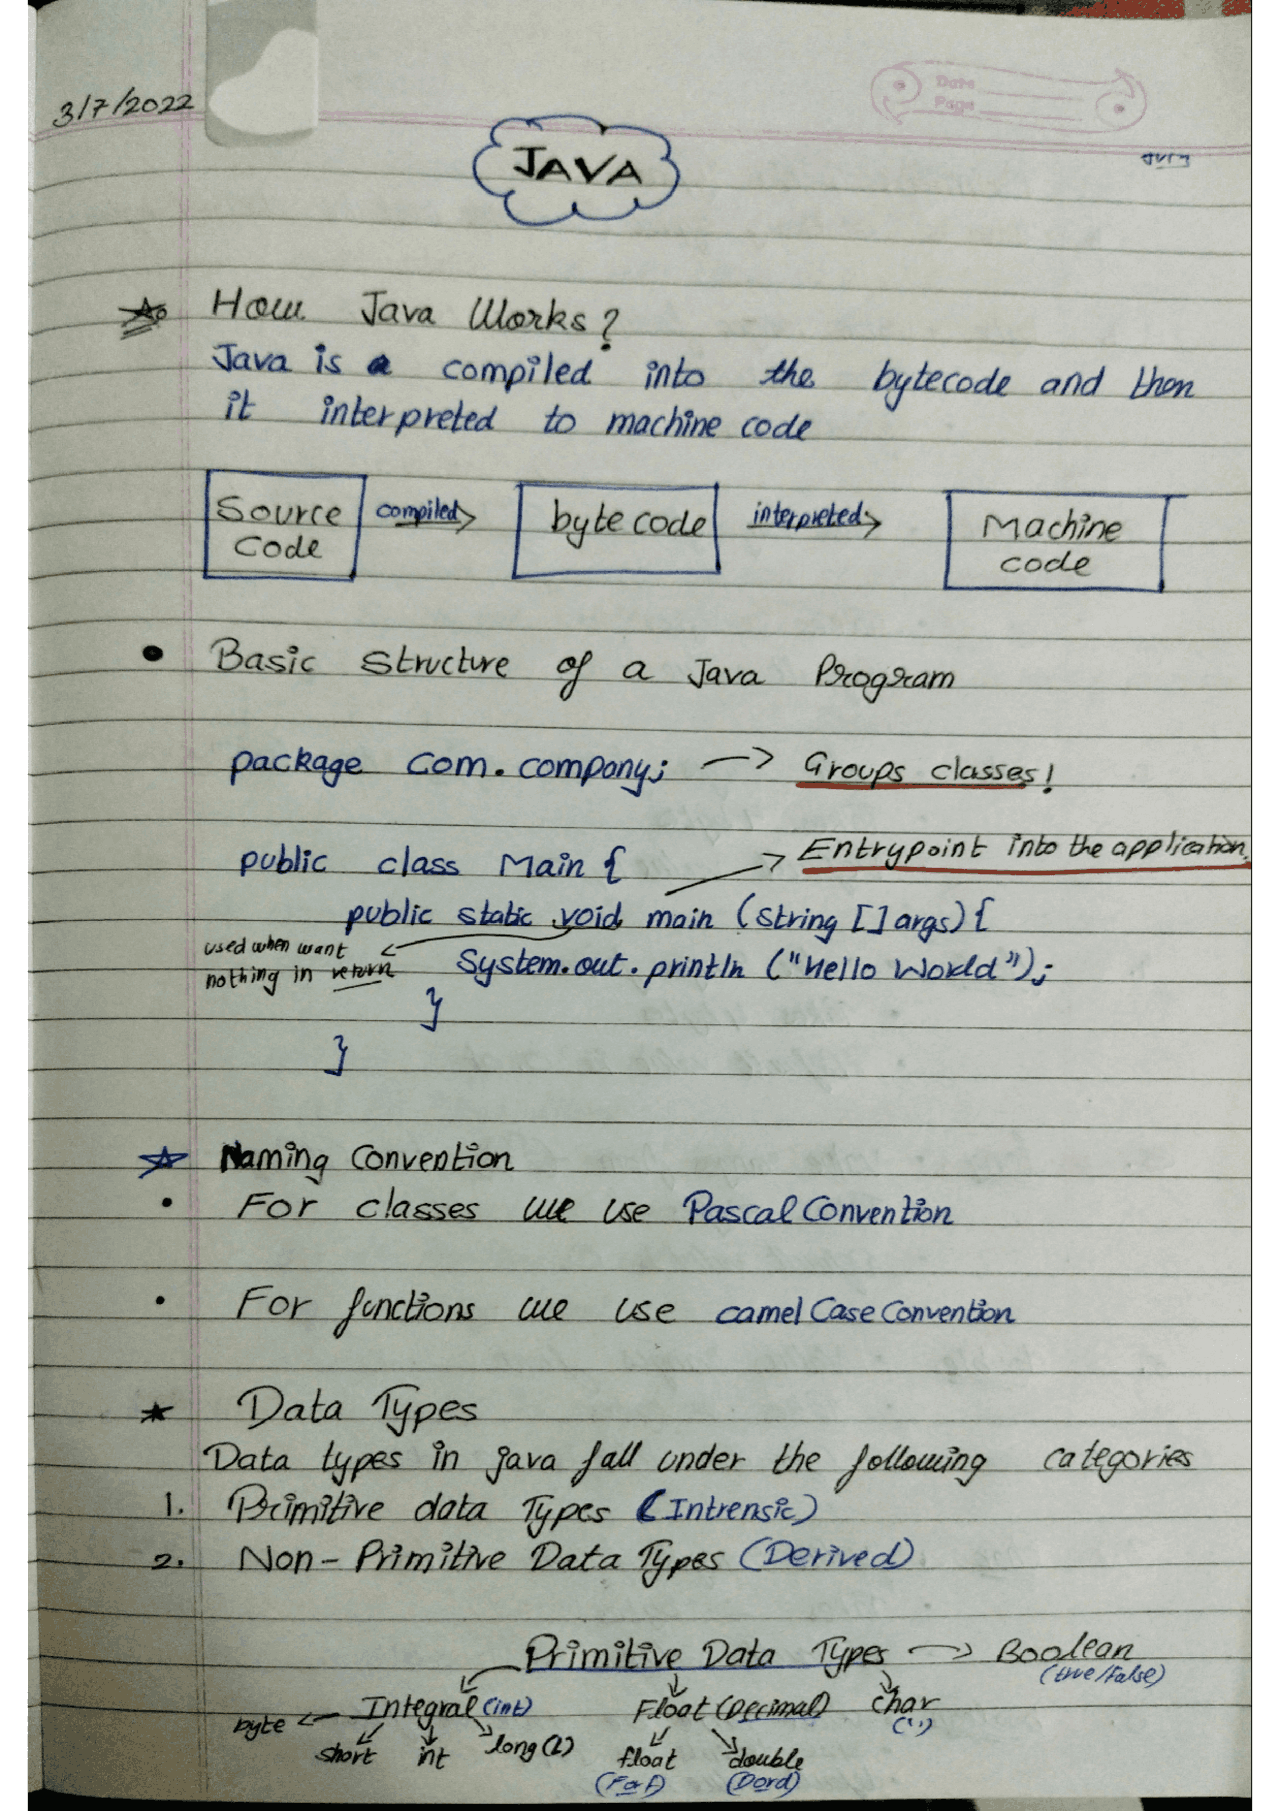 3/7/2022
Date
Page
JAVA
How Java Works?
Java is a compiled into the bytecode and then
it interpreted to machine code
Source Code compiled byte code interpreted Machine code
Basic Structure of a Java Program
package com.company; Groups classes!
Entrypoint into the application.
public class Main {
public static void main (string [] args) {
used when want
nothing in return
System.out.println ("Hello World");
}
}
Naming Convention
• For classes we use Pascal Convention
• For functions we use camel Case Convention
Data Types
Data types in java fall under the following categories
1. Primitive data Types (Intrensic)
2. Non-Primitive Data Types (Derived)
Primitive Data Types Boolean
(true/False)
Integral (int) Float (Decimal) char
byte (' ')
short int long (L) float double
(F or f) (D or d)